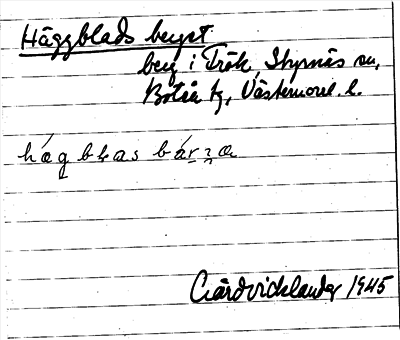 Häggblads berget
berg i Trök, Styrnäs sn,
Boteå tg, Västernorrl. l.
Gärd Vicklander 1945